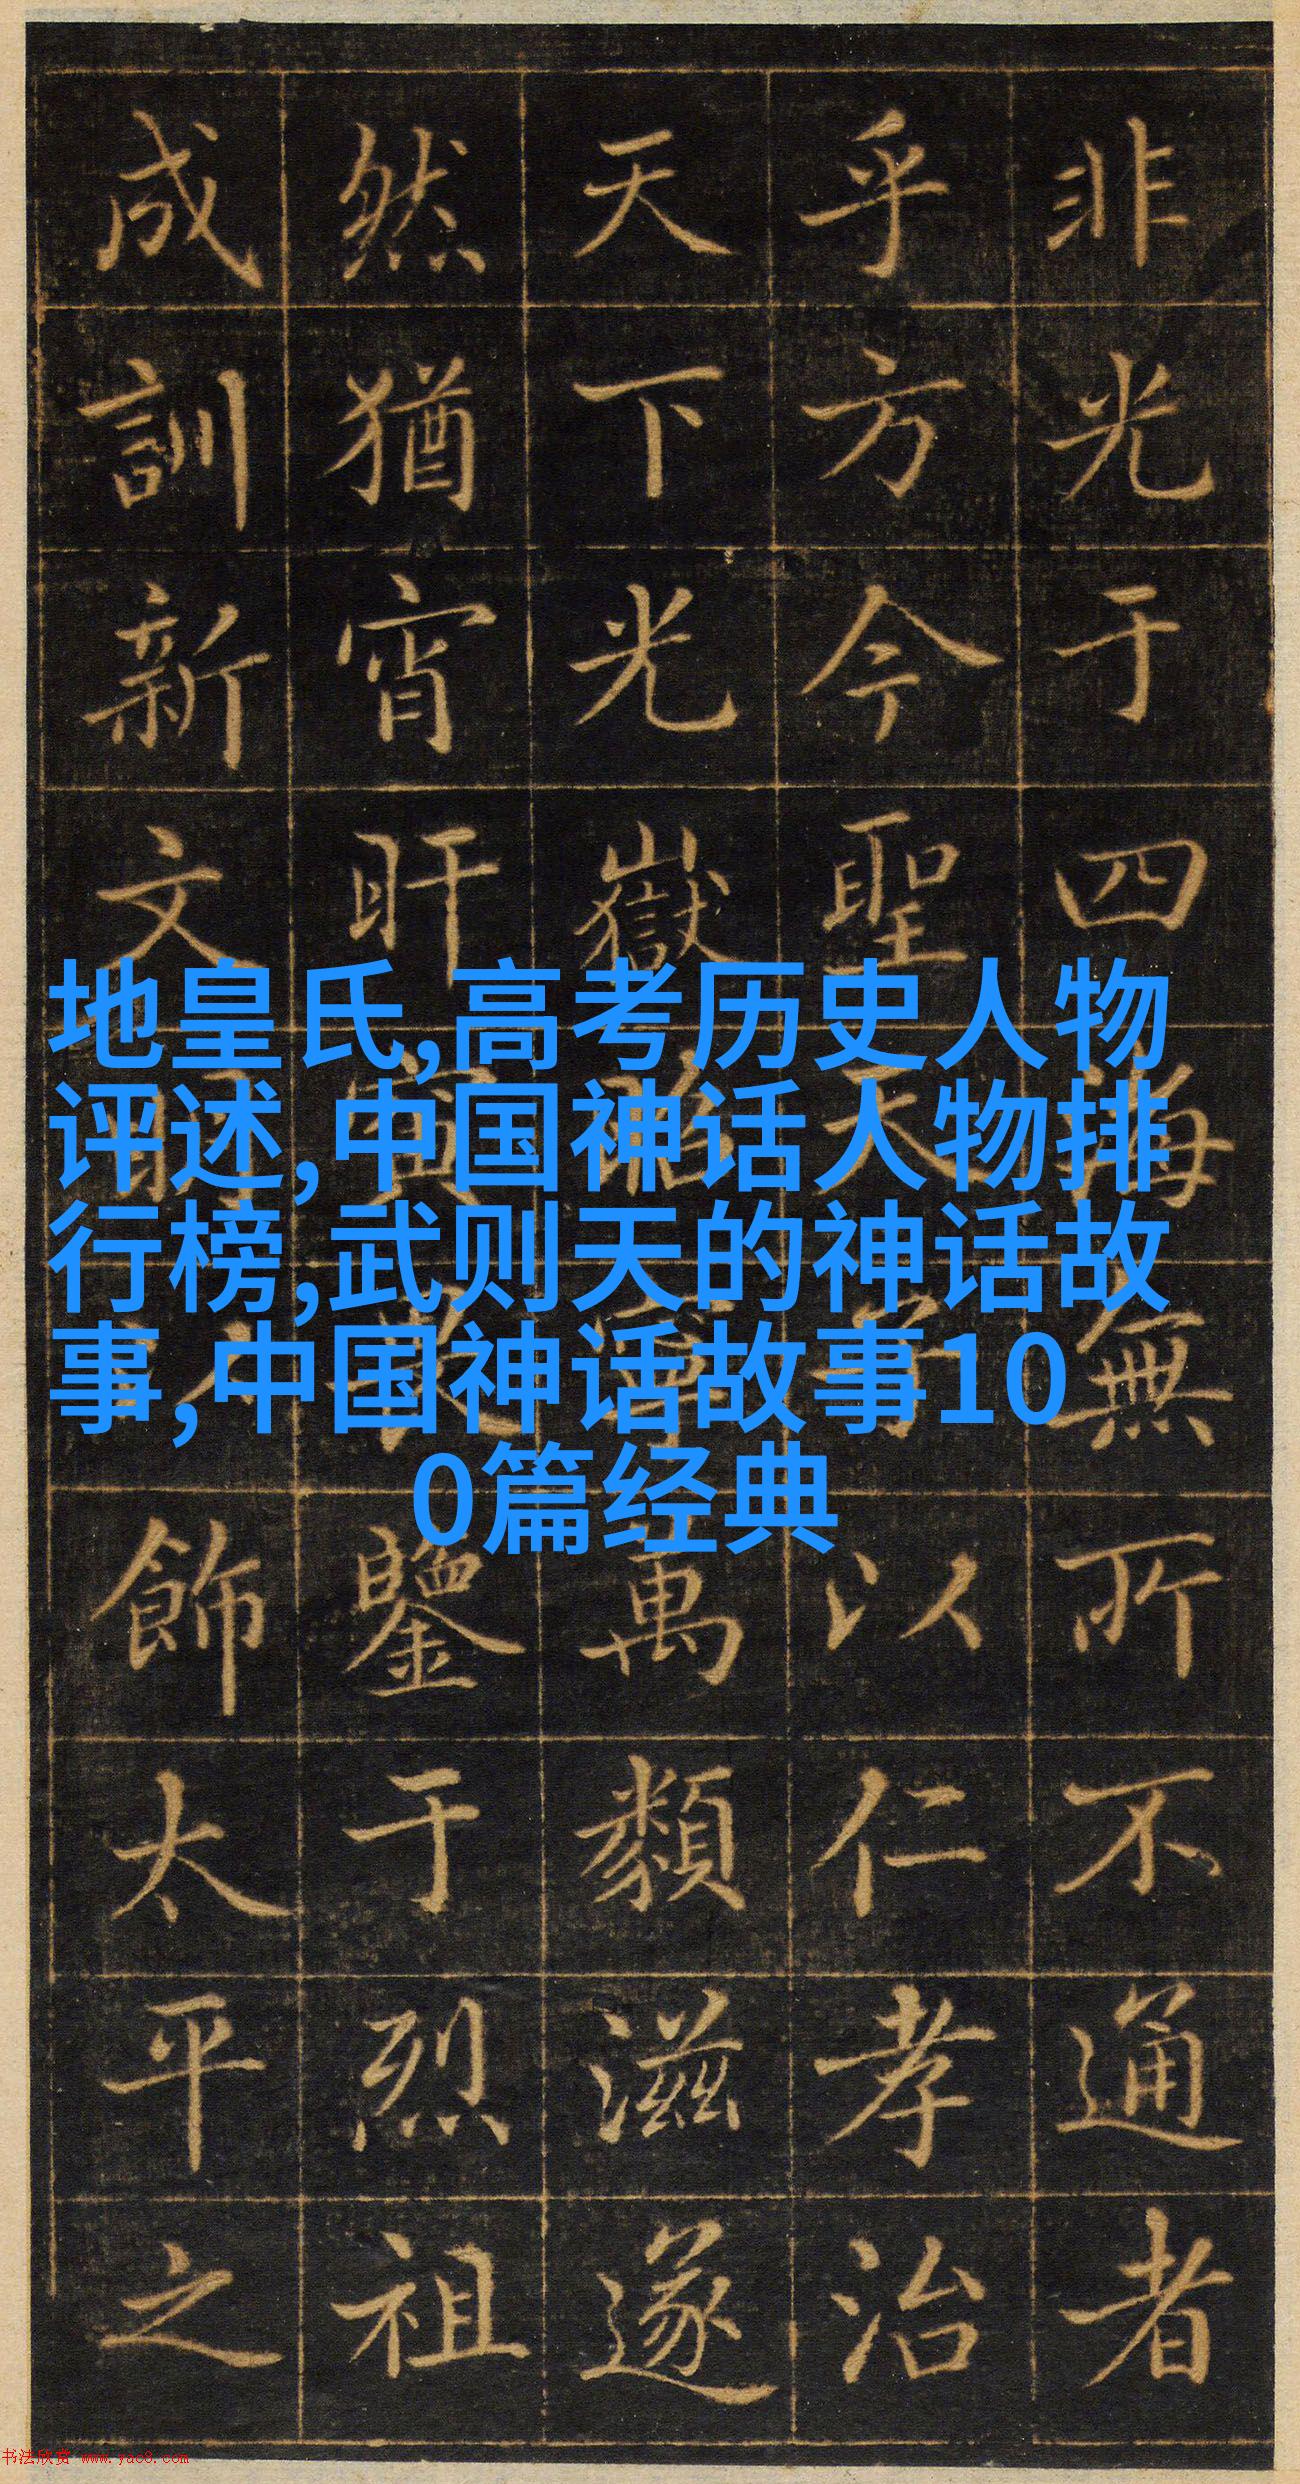 非光于四海無所不通者
乎方今聖天以仁孝治
天下光嶽萬類滋遂
然猶宵旰寅畏鑒于烈祖
成訓新文飾太平之
地皇氏,高考历史人物
评述,中国神话人物排
行榜,武则天的神话故
事,中国神话故事10
0篇经典
书法欣赏 www.yac8.com